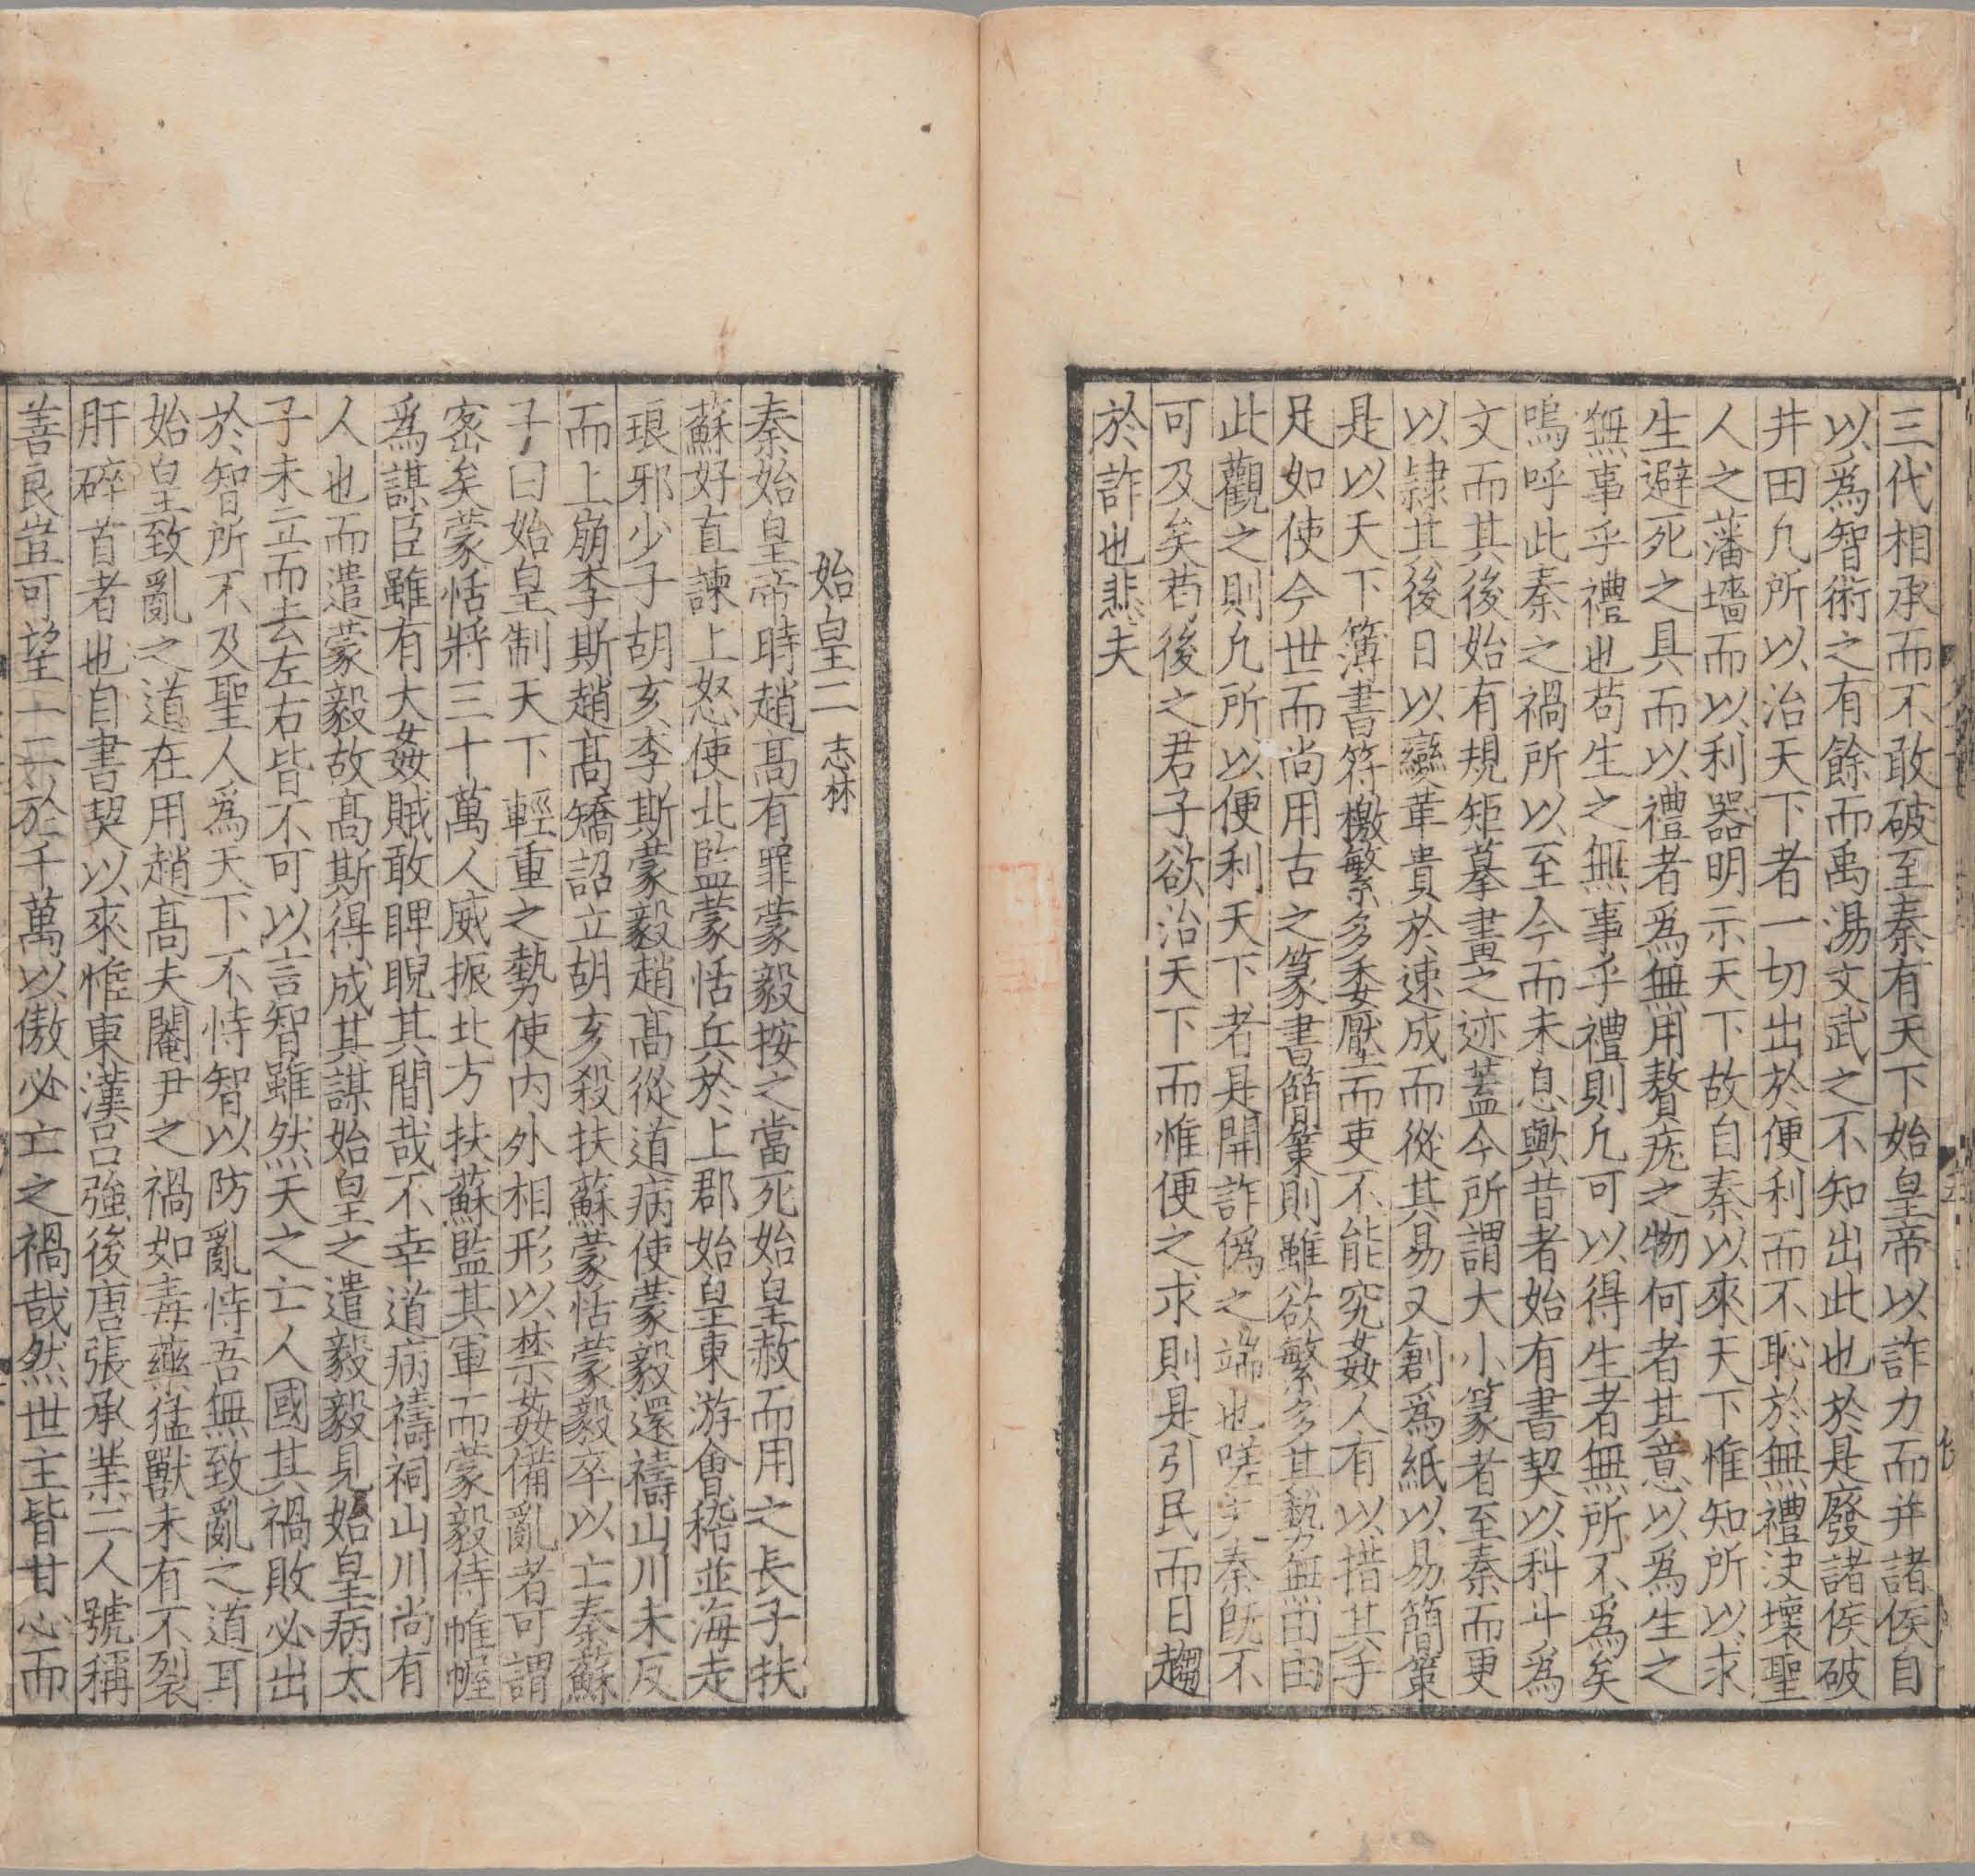 三代相承而不敢破至秦有天下始皇帝以詐力而并諸侯自
以為智術之有餘而禹湯文武之不知出此也於是廢諸侯破
井田凡所以治天下者一切出於便利而不恥於無禮決壞聖
人之藩墻而以利器明示天下故自秦以來天下惟知所以求
生避死之具而以禮者為無用贅疣之物何者其意以為生之
無事乎禮也苟生之無事乎禮則凡可以得生者無所不為矣
嗚呼此秦之禍所以至今而未息歟昔者始有書契以科斗為
文而其後始有規矩摹畫之迹蓋今所謂大小篆者至秦而更
以隸其後日以變革貴於速成而從其易又創為紙以易簡策
是以天下簿書符檄繁多委壓而吏不能究姦人有以措其手
足如使今世而尚用古之篆書簡策則雖欲繁多其勢無由由
此觀之則凡所以便利天下者是開詐偽之端也嗟夫秦既不
可及矣苟後之君子欲治天下而惟便之求則是引民而日趨
於詐也悲夫
始皇二 志林
秦始皇帝時趙高有罪蒙毅按之當死始皇赦而用之長子扶
蘇好直諫上怒使北監蒙恬兵於上郡始皇東游會稽並海走
琅邪少子胡亥李斯蒙毅趙高從道病使蒙毅還禱山川未反
而上崩李斯趙高矯詔立胡亥殺扶蘇蒙恬蒙毅卒以亡秦蘇
子曰始皇制天下輕重之勢使內外相形以禁姦備亂者可謂
密矣蒙恬將三十萬人威振北方扶蘇監其軍而蒙毅侍帷幄
為謀臣雖有大姦賊敢睥睨其間哉不幸道病禱祠山川尚有
人也而遣蒙毅故高斯得成其謀始皇之遣毅毅見始皇病太
子未立而去左右皆不可以言智雖然天之亡人國其禍敗必出
於智所不及聖人為天下不恃智以防亂恃吾無致亂之道耳
始皇致亂之道在用趙高夫閹尹之禍如毒藥猛獸未有不裂
肝碎首者也自書契以來惟東漢呂強後唐張承業二人號稱
善良豈可望一二於千萬以傲必亡之禍哉然世主皆甘心而